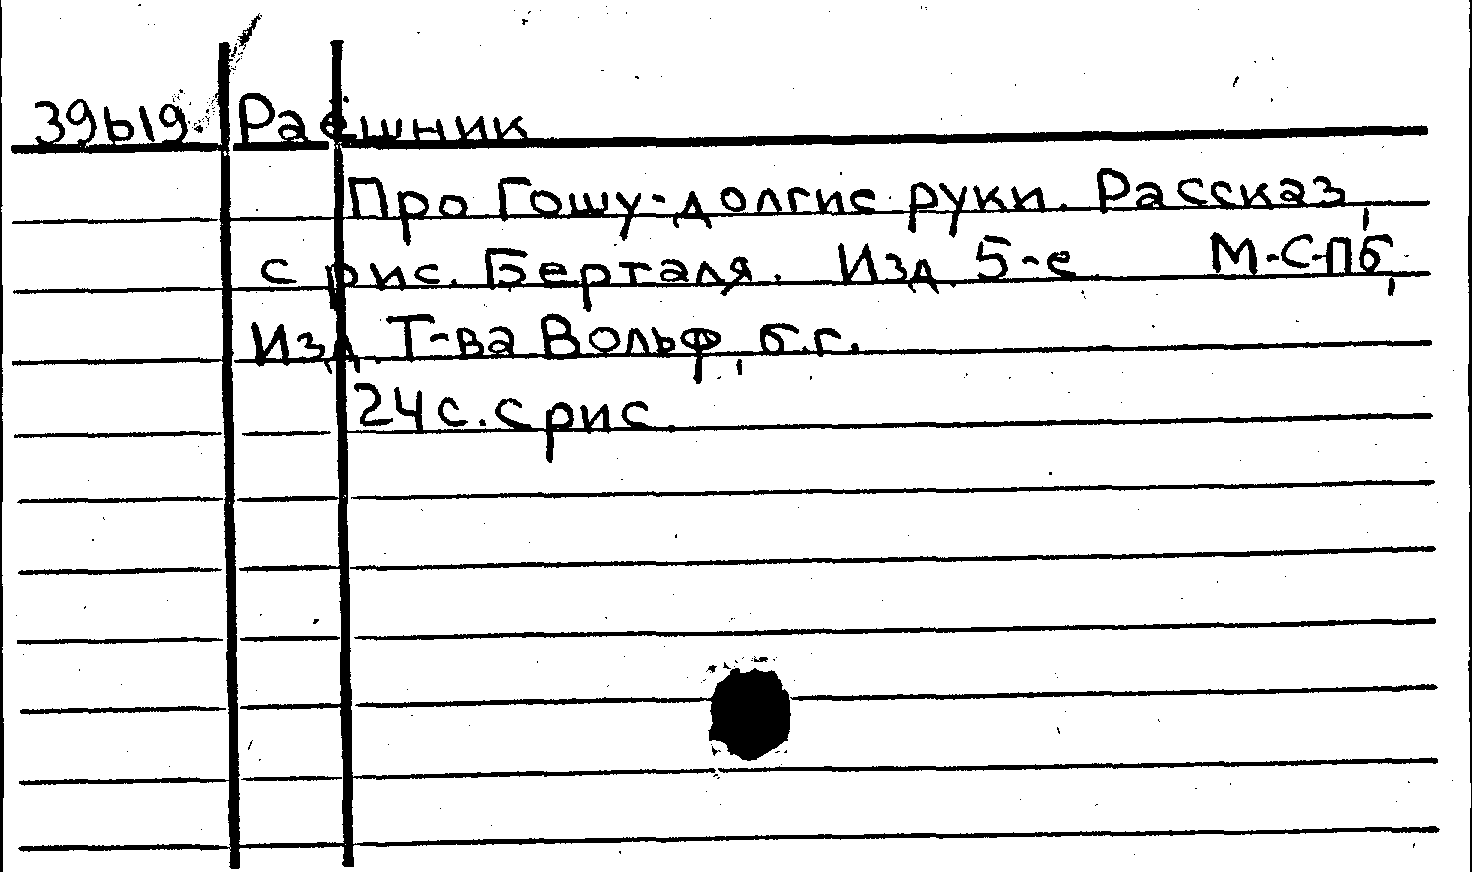 39619 Раёшник
Про Гошу-долгие руки. Рассказ,
с рис. Берталя. Изд. 5-е. М-С-Пб,
Изд. Т-ва Вольф, б.г.
24 с. с рис.